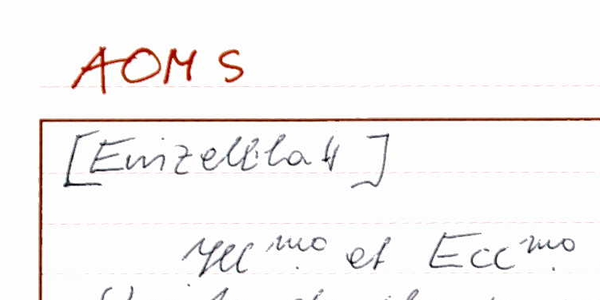 AOM S
[Einzelblatt]
Ill mo et Ecc mo